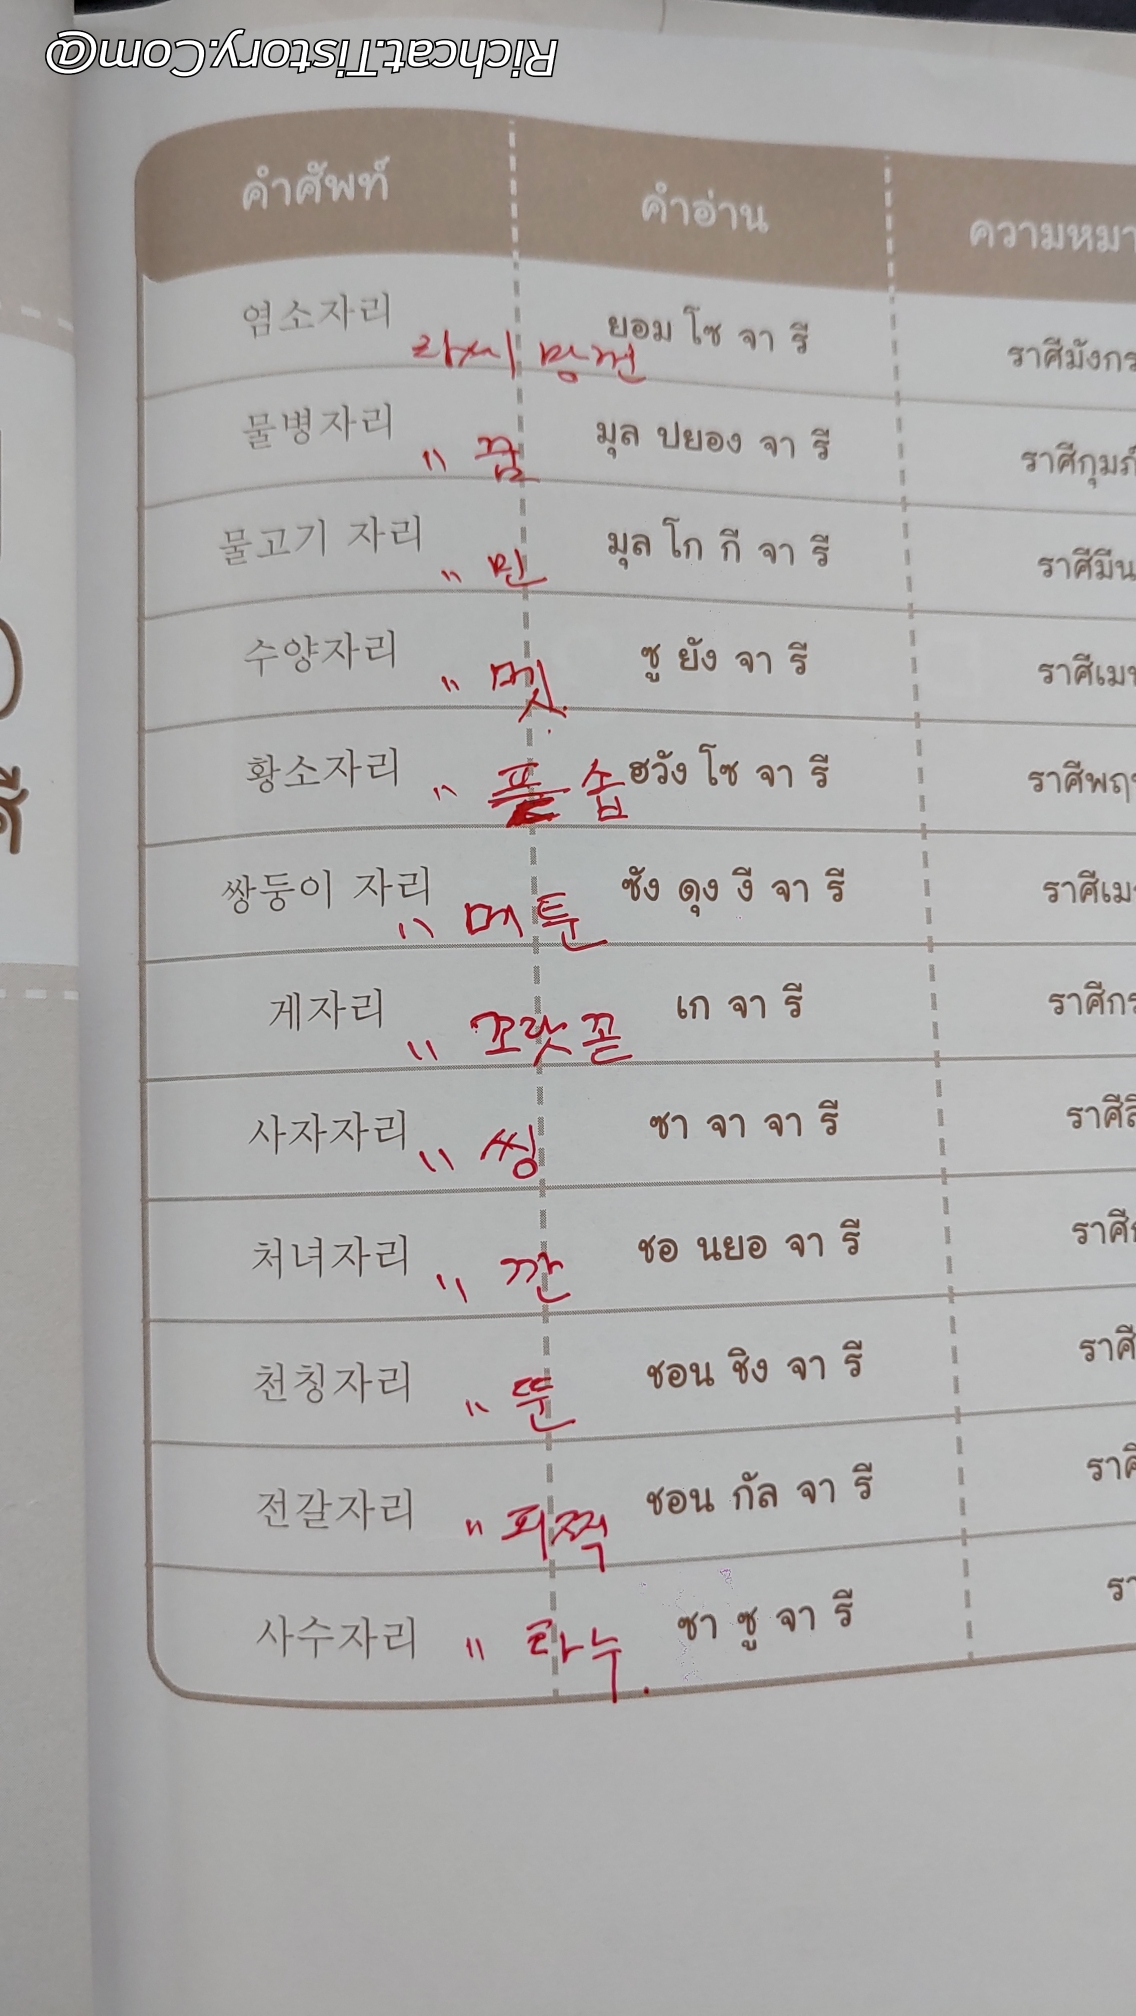 Richcat.Tistory.Com@
คำศัพท์ คำอ่าน ความหมา
염소자리 ยอม โซ จา รี ราศีมังกร
라시 망껀
물병자리 มุล ปยอง จา รี ราศีกุมภ์
" 꿈
물고기 자리 มุล โก กี จา รี ราศีมีน
" 민
수양자리 ซู ยัง จา รี ราศีเมษ
" 멧
황소자리 ฮวัง โซ จา รี ราศีพฤ
" 숩
쌍둥이 자리 ซัง ดุง งี จา รี ราศีเม
" 메툰
게자리 เก จา รี ราศีกร
" 꼬랏꼳
사자자리 ซา จา จา รี ราศีสิ
" 씽
처녀자리 ชอ นยอ จา รี ราศีก
" 깐
천칭자리 ชอน ชิง จา รี ราศี
" 뚠
전갈자리 ชอน กัล จา รี ราศี
" 피찍
사수자리 ซา ซู จา รี รา
" 타누.